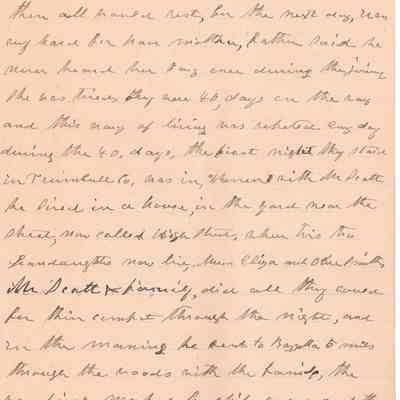 then all would rest, for the next day, was
very hard for poor mother, father said he
never heard her say once during the jurney
she was tired they were 40, days on the way
and this way of living was repeted evry day
during the 40, days, the first night they staid
in Trumbull Co, was in Warren with Mr Scott
he lived in a house, in the yard near the
street, now called High Street, where his two
Grandaughters now live, Miss Eliza and Olive Smith
Mr Scott & family, did all they could
for their comfort through the night, and
in the morning he sent to Bazetta 6 miles
through the woods with the family, the